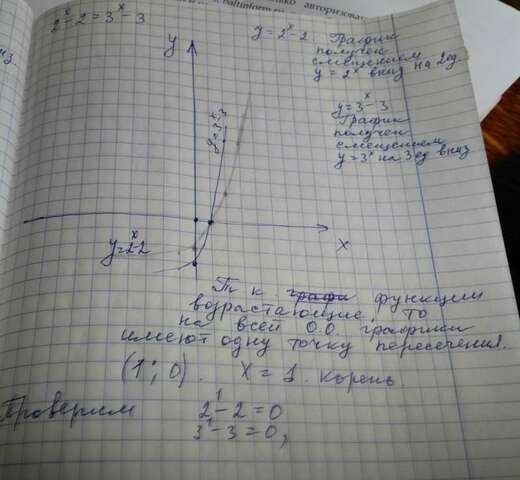 2^x - 2 = 3^x - 3
y = 2^x - 2. График
получен
смещением
y = 2^x вниз на 2ед.
y = 3^x - 3
График
получен
смещением
y = 3^x на 3 ед вниз
y
y = 3^x - 3
x
y = 2^x - 2
Т к функции
возрастающие, то
на всей О.О. графики
имеют одну точку пересечения.
(1; 0). x = 1. корень
Проверим 2^1 - 2 = 0
3^1 - 3 = 0,